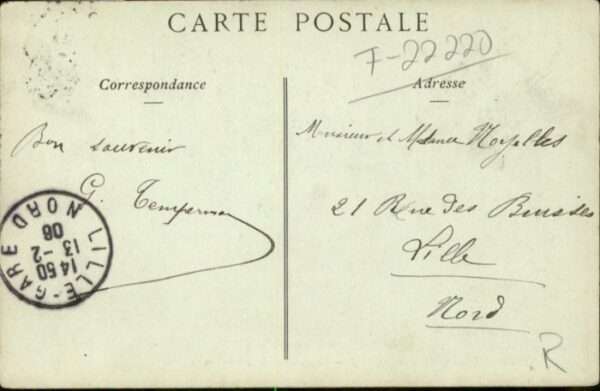 CARTE POSTALE
F-22220
Correspondance
Adresse
Bon souvenir
G. Temperman
Monsieur et Madame Noyelles
21 Rue des Buisses
Lille
Nord
LILLE-GARE NORD
14 50
13-2
08
R